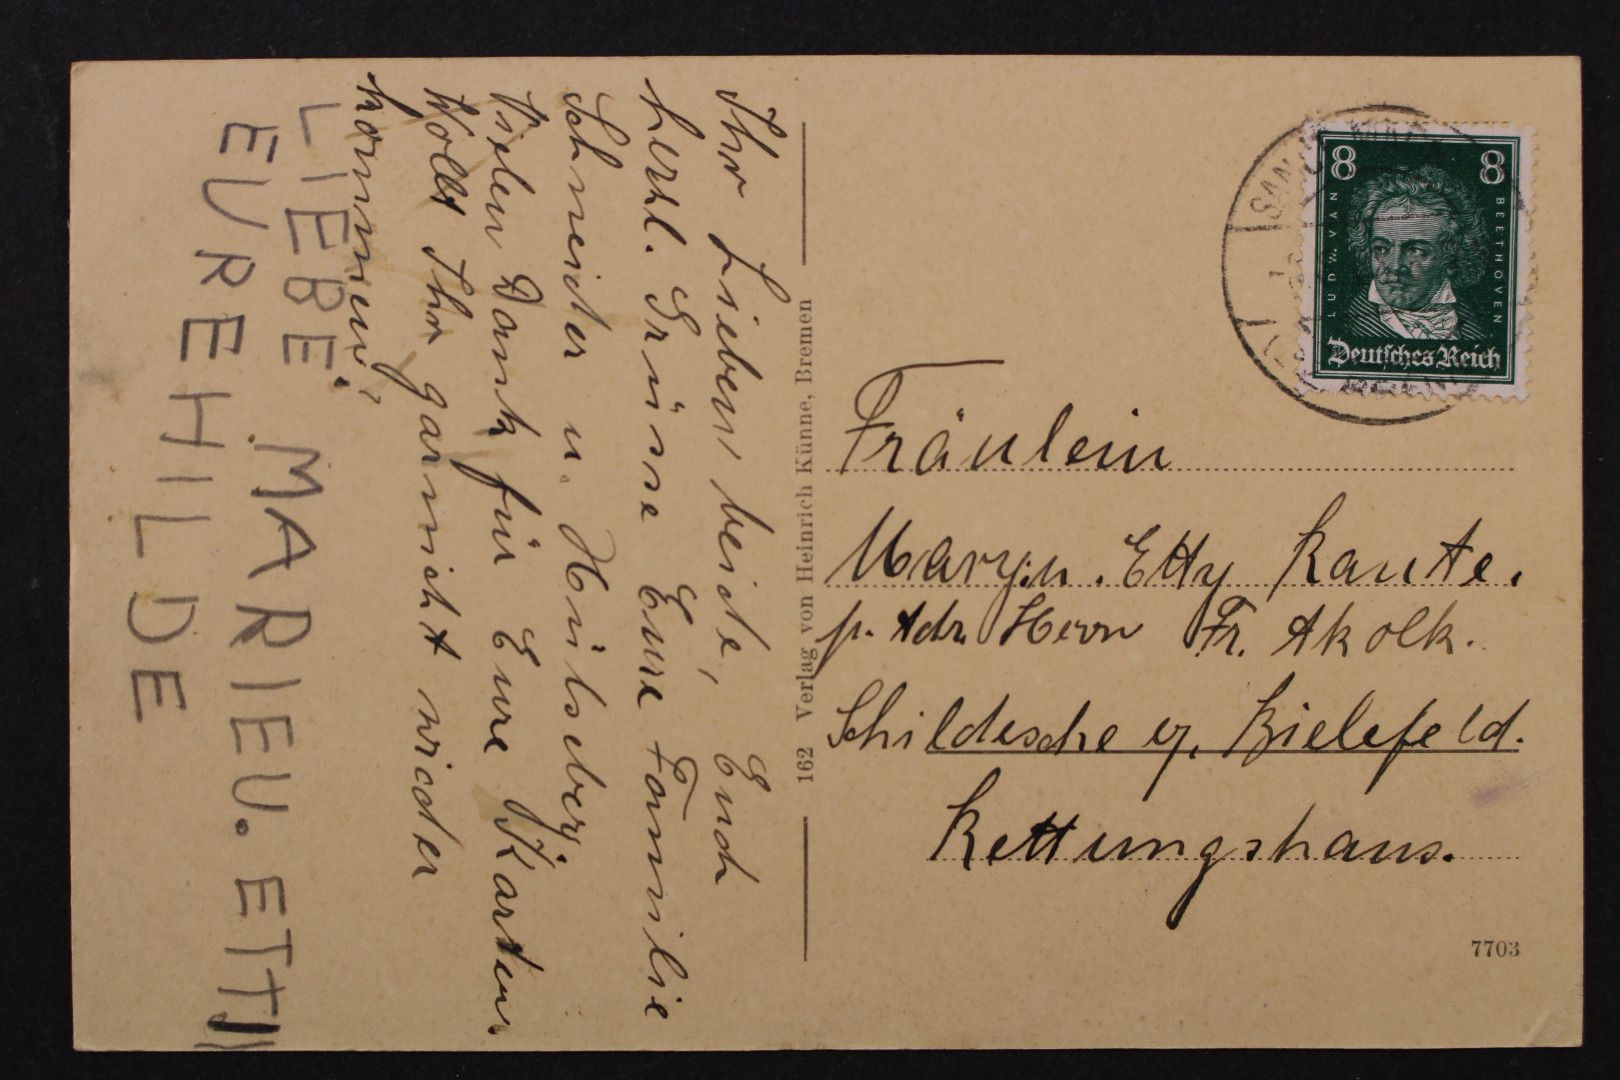 Ihr Lieben beide, Euch
herzl. Grüsse Eure Familie
Schneider u. Hülseberg.
Vielen Dank für Eure Karten
Wollt Ihr garnicht wieder
kommen?
LIEBE MARIE U. ETTI
EURE HILDE
162 Verlag von Heinrich Künne, Bremen
8 8
LUDW. VAN BEETHOVEN
Deutsches Reich
Fräulein
Mary u. Etty Kaute.
p. Adr. Herrn Fr. Akolk.
Schildesche b/. Bielefeld.
Rettungshaus.
7703